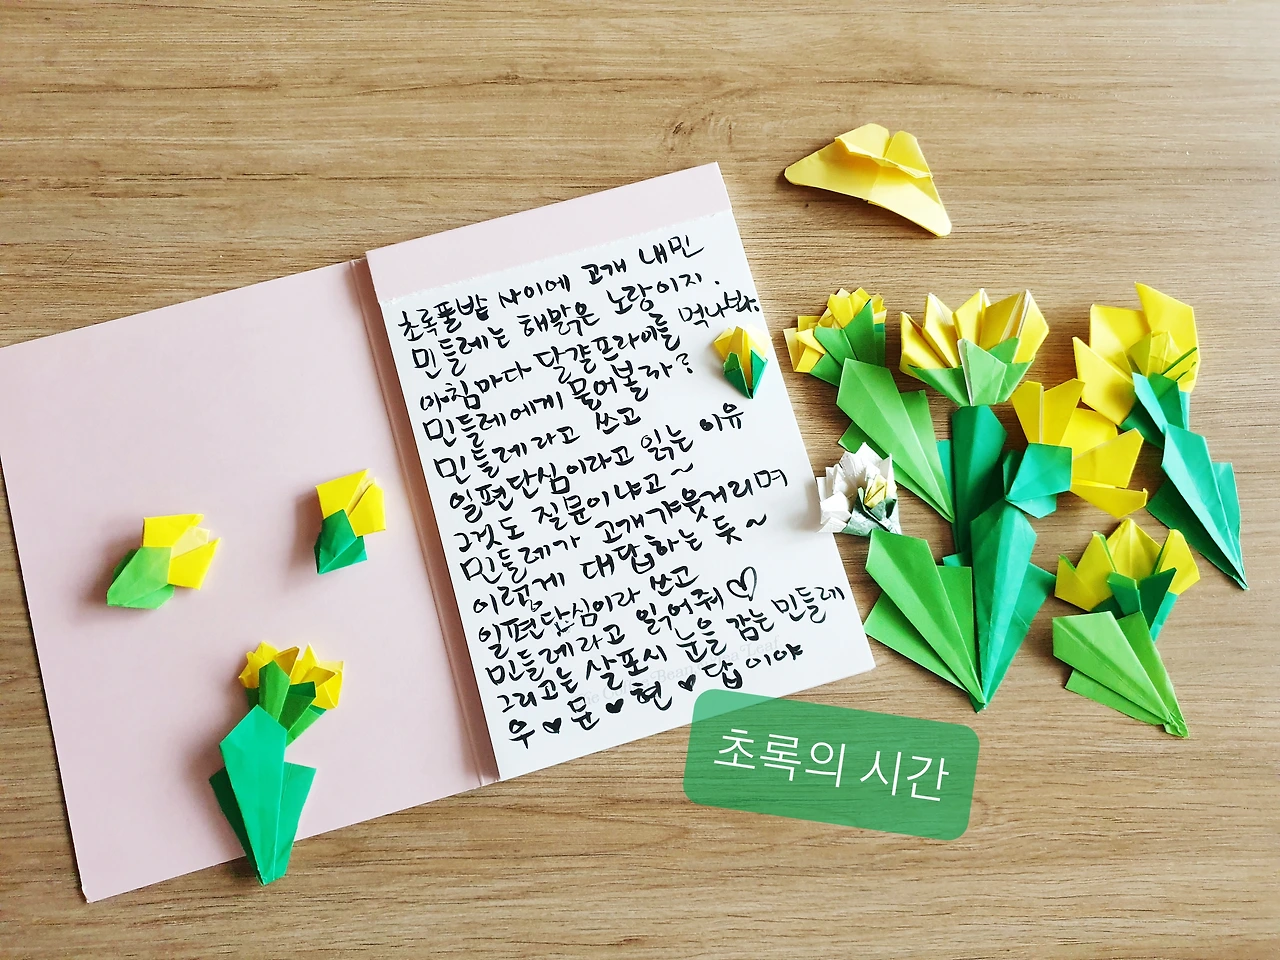 초록풀밭 사이에 고개 내민
민들레는 해맑은 노랑이지.
아침마다 달걀프라이를 먹나봐?
민들레에게 물어볼까?
민들레라고 쓰고
일편단심이라고 읽는 이유
그것도 질문이냐고~
민들레가 고개갸웃거리며
이렇게 대답하는 듯~
일편단심이라 쓰고
민들레라고 읽어줘♡
그리고는 살포시 눈을 감는 민들레
우♥문♥현♥답이야
초록의 시간